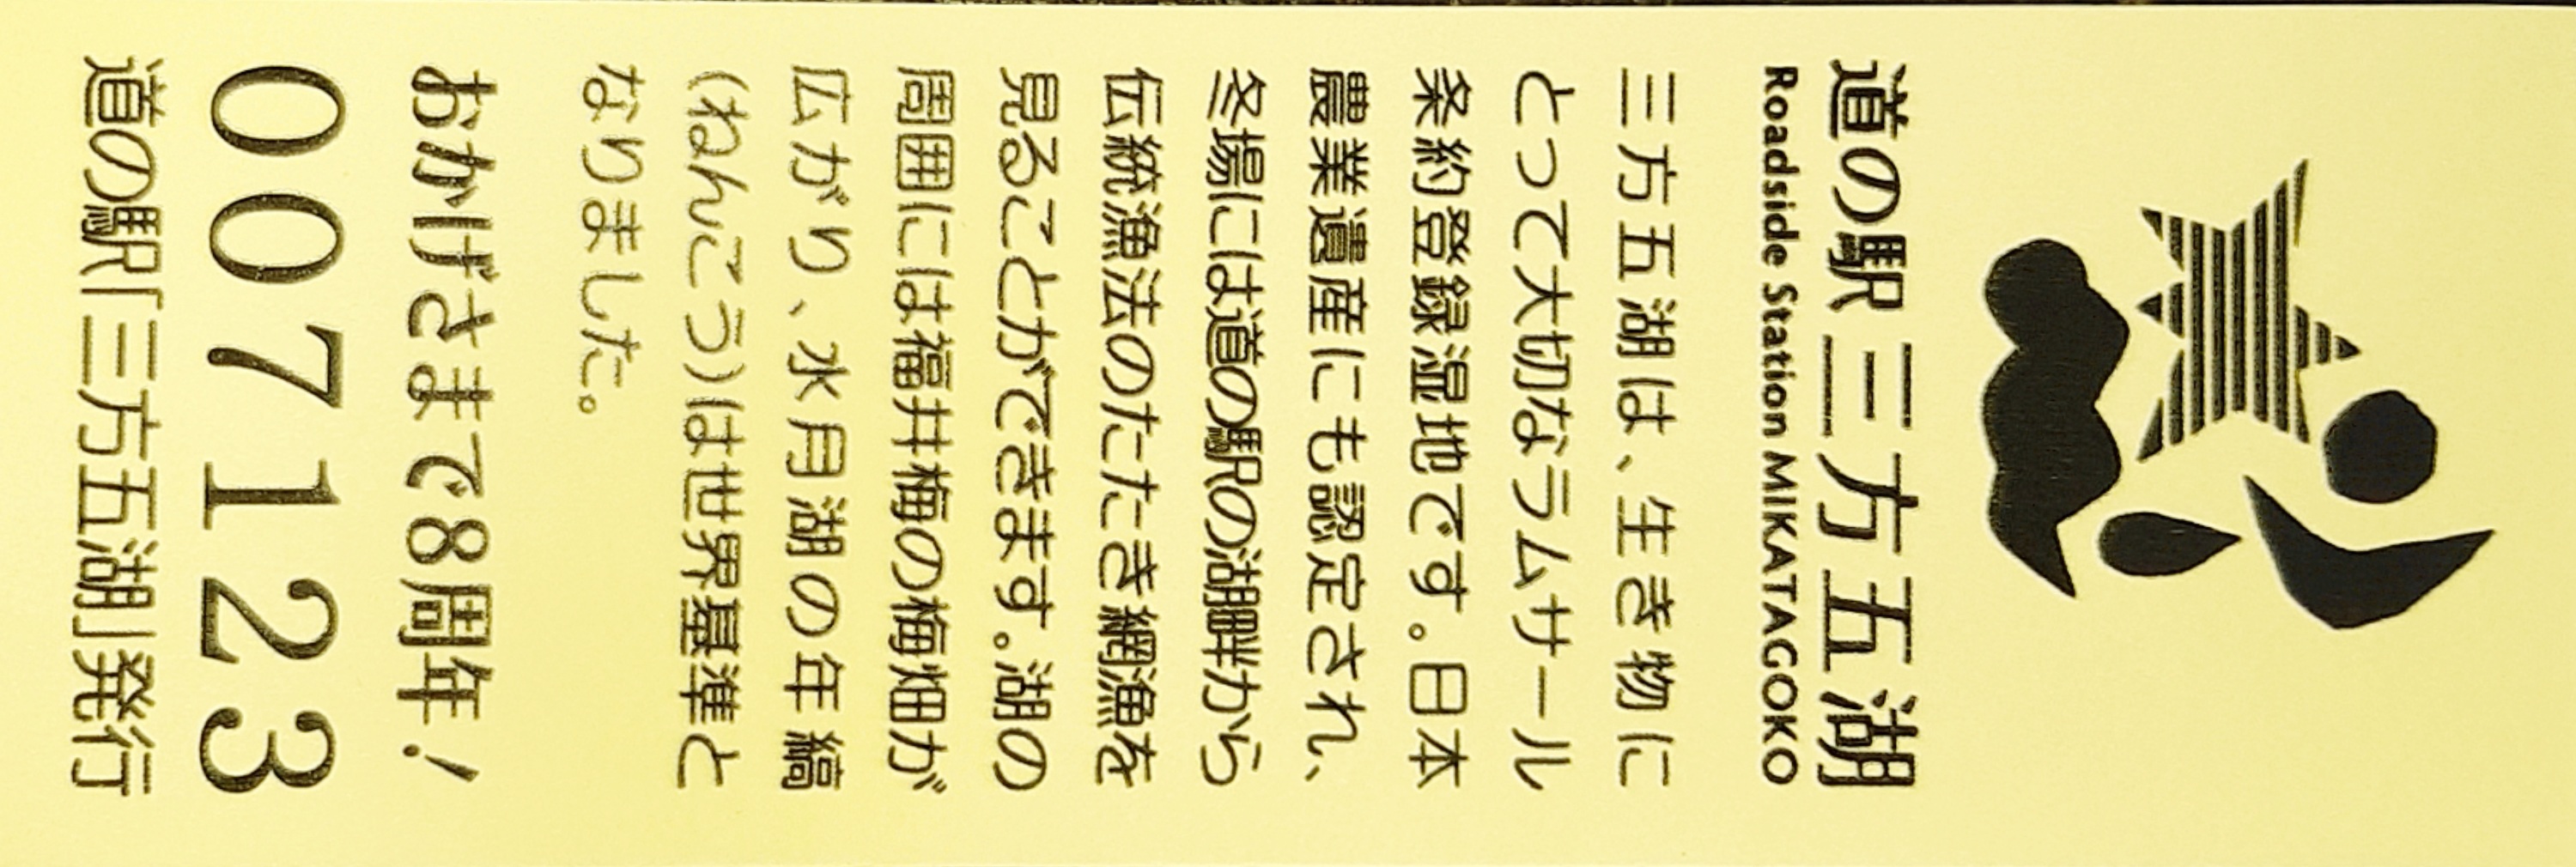 道の駅 三方五湖
Roadside Station MIKATAGOKO
三方五湖は、生き物に
とって大切なラムサール
条約登録湿地です。日本
農業遺産にも認定され、
冬場には道の駅の湖畔から
伝統漁法のたたき網漁を
見ることができます。湖の
周囲には福井梅の梅畑が
広がり、水月湖の年縞
(ねんこう)は世界基準と
なりました。
おかげさまで8周年!
007123
道の駅「三方五湖」発行